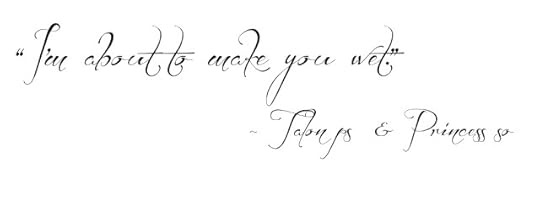 “I'm about to make you wet.”
~ Talon ps & Princess so